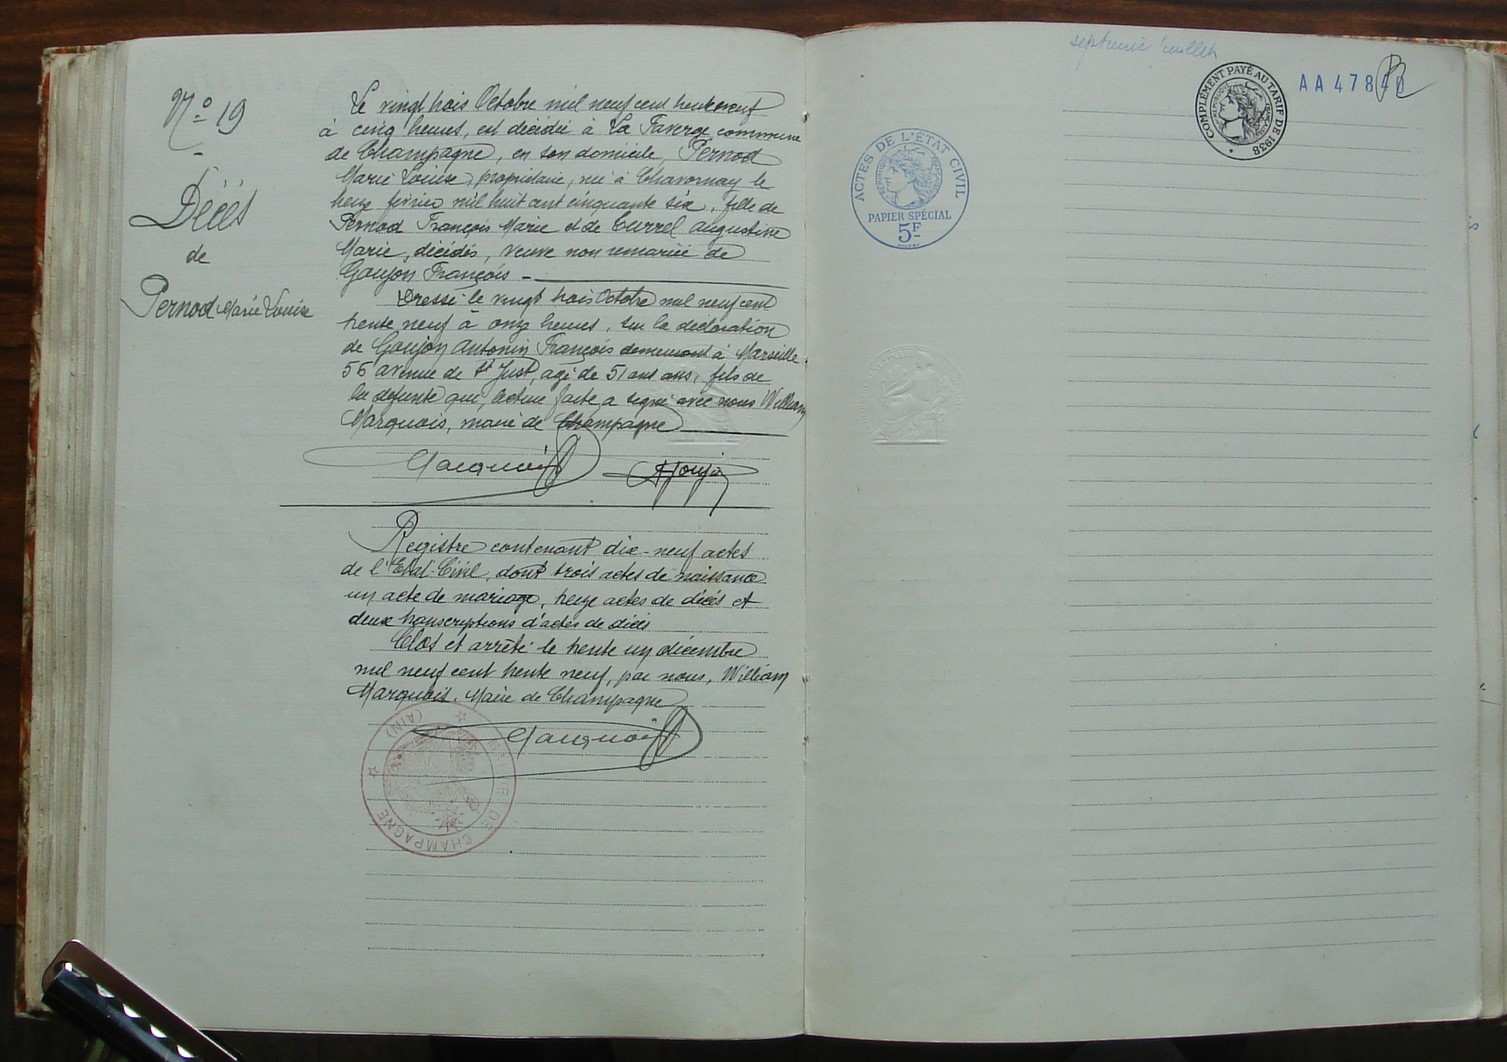 N° 19
Décès
de
Pernod Marie Louise
Le vingt trois Octobre mil neuf cent trente neuf
à cinq heures, est décédée à La Faverge commune
de Champagne, en son domicile, Pernod
Marie Louise, propriétaire, née à Chavornay le
treize février mil huit cent cinquante six, fille de
Pernod François Marie et de Currel Augustine
Marie, décédés, veuve non remariée de
Goujon François
Dressé le vingt trois Octobre mil neuf cent
trente neuf à onze heures, sur la déclaration
de Goujon Antonin François demeurant à Marseille
56 avenue de St Just, agé de 51 ans, fils de
la défunte qui, lecture faite a signé avec nous William
Marquois, maire de Champagne
Marquois
AGoujon
Registre contenant dix-neuf actes
de l'Etat-Civil, dont trois actes de naissance
un acte de mariage, treize actes de décès et
deux transcriptions d'actes de décès
Clos et arrêté le trente un décembre
mil neuf cent trente neuf, par nous, William
Marquois, Maire de Champagne
Marquois
MAIRIE DE CHAMPAGNE (AIN)
septième feuillet
COMPLÉMENT PAYÉ AU TARIF DE 1938
AA 478
ACTES DE L'ÉTAT CIVIL
PAPIER SPÉCIAL
5F